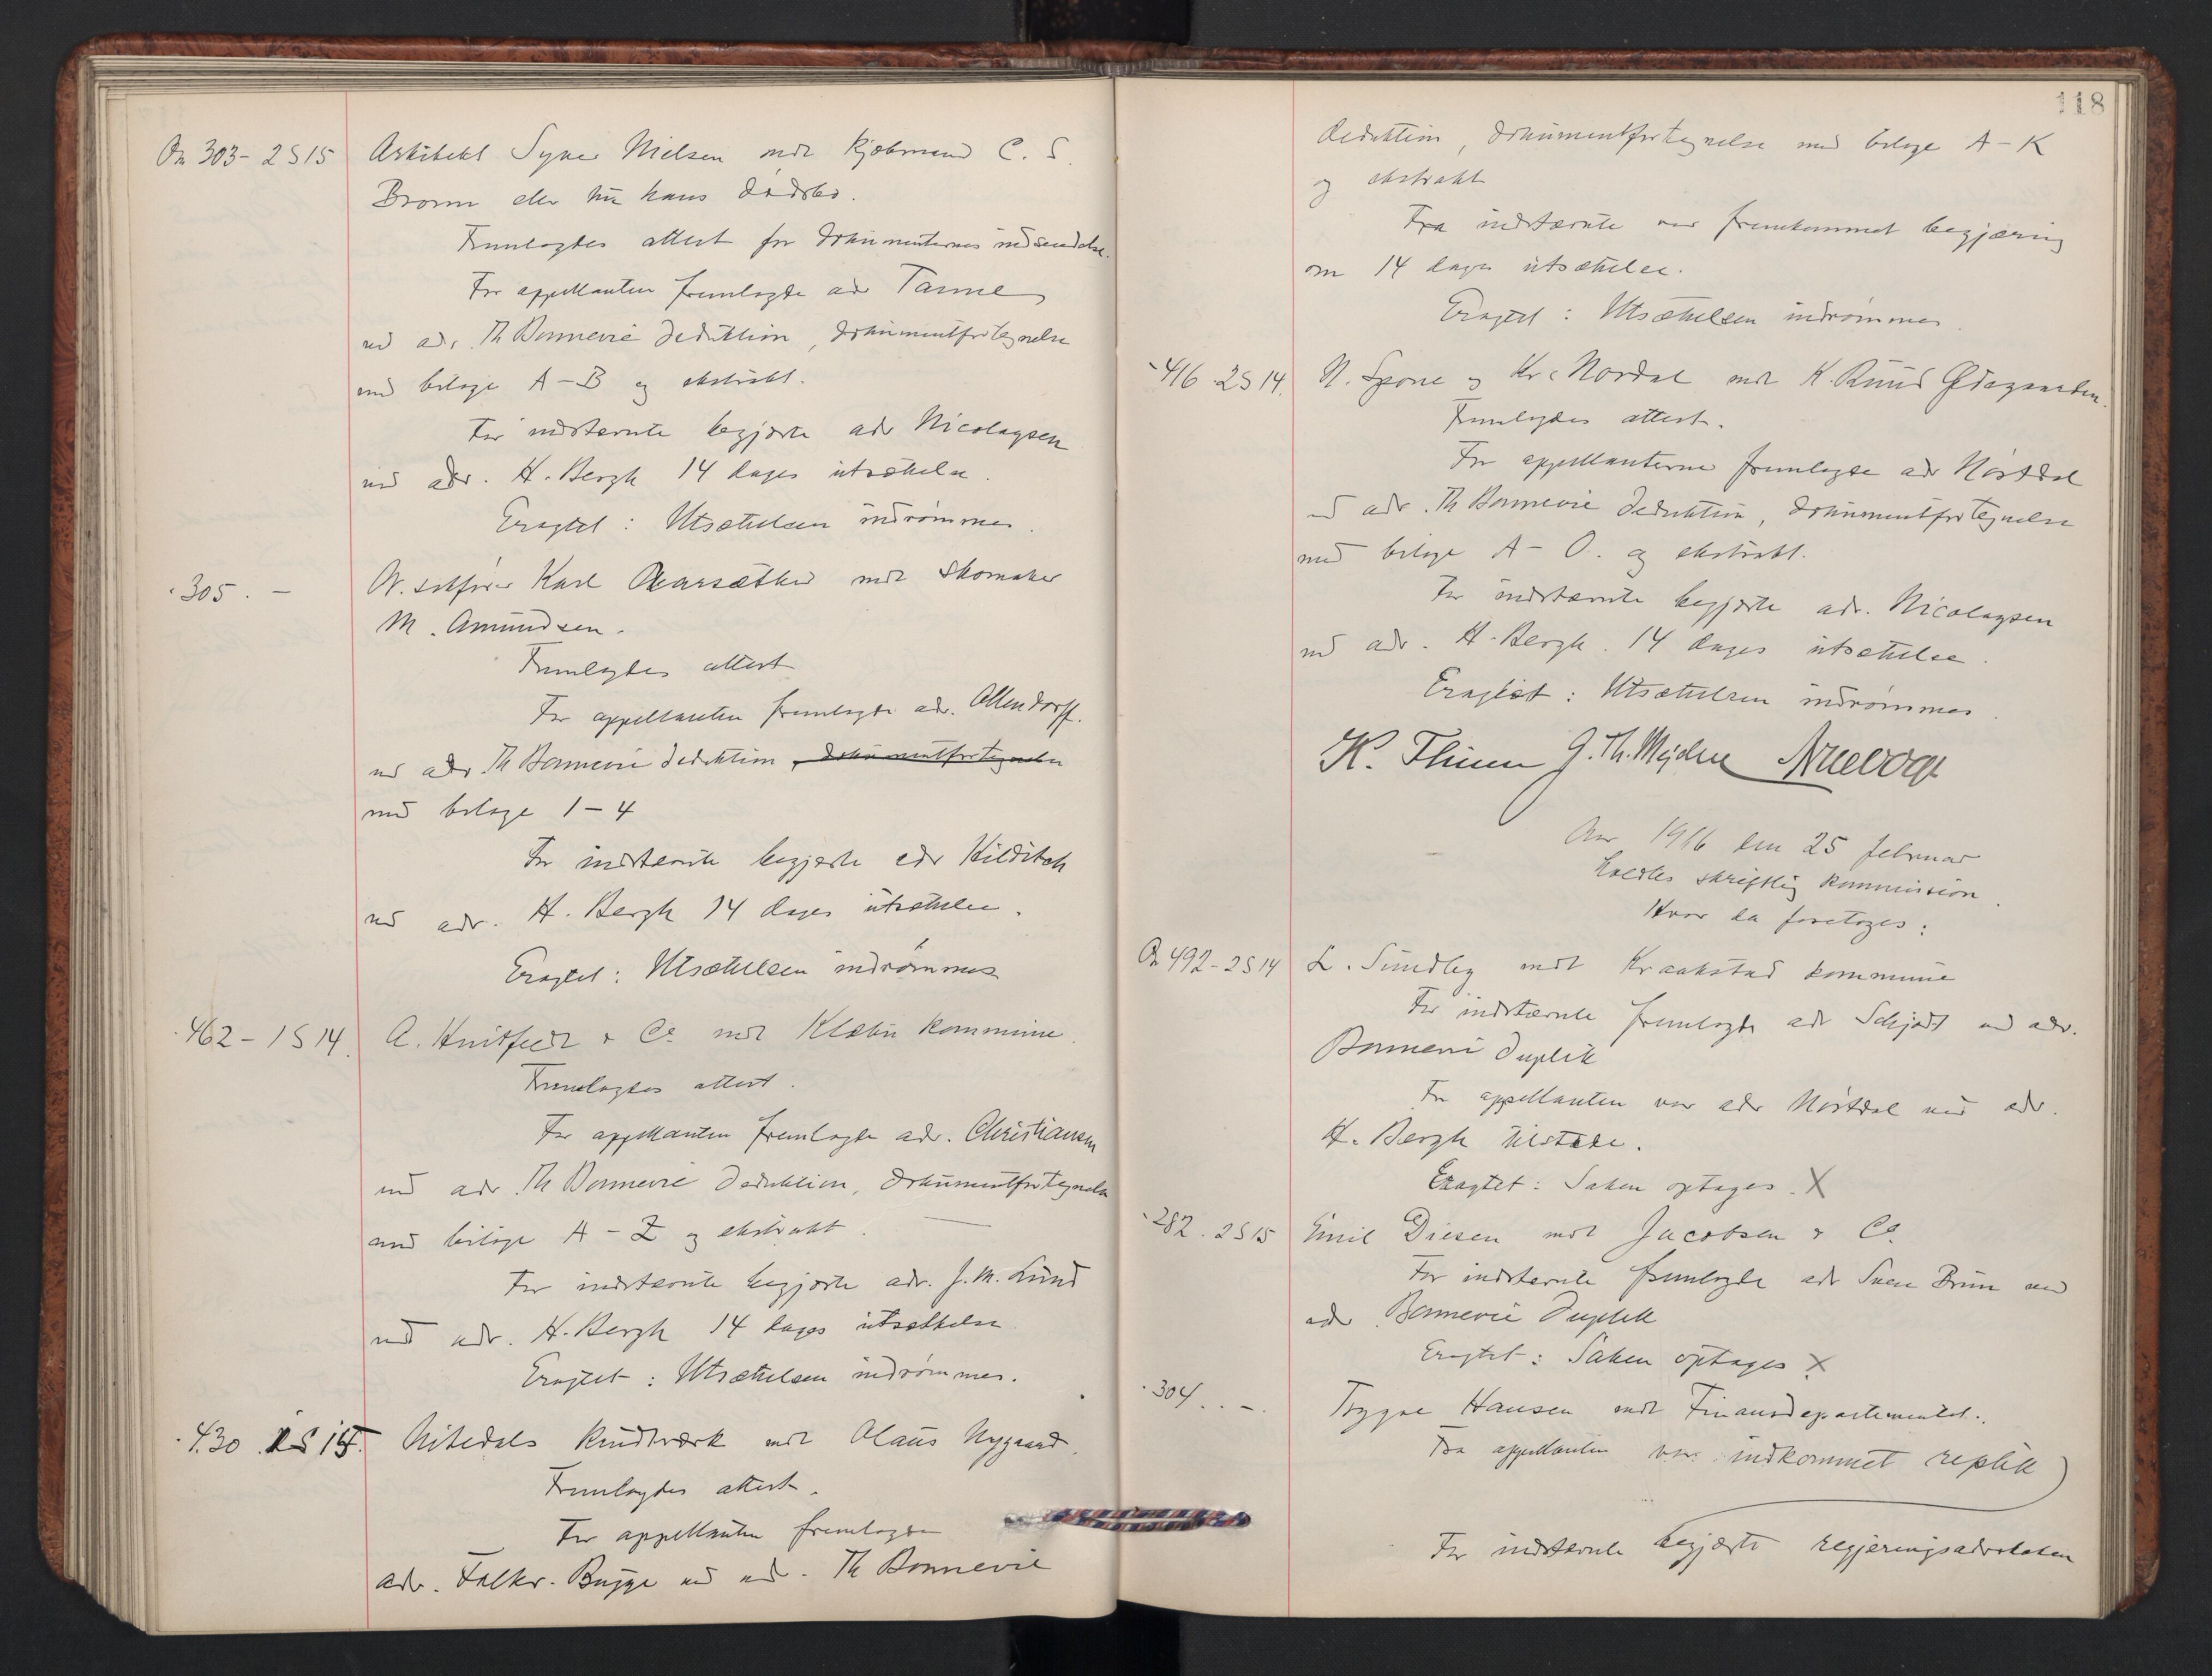 On 303 - 2 S 15 Arkitekt Syver Nielsen mot kjøbmand C. S.
Bronn eller nu hans dødsbo.
Fremlagdes attest for dokumenternes indsendelse.
For appellanten fremlagde adv Tanne
ved adv. Th Bonnevie deduktion, dokumentfortegnelse
med bilage A - B og ekstrakt.
For indstevnte begjærte adv Nicolaysen
ved adv. H. Bergh 14 dages utsættelse.
Eragtet: Utsættelsen indrømmes.
305. - O.r.sakfører Karl Aarsæther mot skomaker
M. Amundsen.
Fremlagdes attest
For appellanten fremlagde adv. Ollendorff.
ved adv Th Bonnevie deduktion, dokumentfortegnelse
med bilage 1 - 4
For indstevnte begjærte adv Hilditch
ved adv. H. Bergh 14 dages utsættelse.
Eragtet: Utsættelsen indrømmes
462 - 1 S 14. A. Huitfeldt & Co mot Klæbu kommune.
Fremlagdes attest.
For appellanten fremlagde adv. Christiansen
ved adv Th Bonnevie deduktion, dokumentfortegnelse
med bilage A - Z og ekstrakt.
For indstevnte begjærte adv. J. M. Lund
ved adv. H. Bergh 14 dages utsættelse
Eragtet: Utsættelsen indrømmes.
430 S 15. Nitedals krudtværk mot Olaus Nygaard.
Fremlagdes attest.
For appellanten fremlagde
adv. Falkr. Bugge ved adv. Th Bonnevie
118
deduktion, dokumentfortegnelse med bilage A - K
og ekstrakt
Fra indstævnte var fremkommet begjæring
om 14 dages utsættelse.
Eragtet: Utsættelsen indrømmes.
416 - 2 S 14. N. Spone og Kr. Nordal mot K. Ruud
Fremlagdes attest.
For appellanterne fremlagde adv Hørtdal
ved adv. Th Bonnevie deduktion, dokumentfortegnelse
med bilage A - O. og ekstrakt.
For indstævnte begjærte adv. Nicolaysen
ved adv. H. Bergh. 14 dages utsættelse.
Eragtet: Utsættelsen indrømmes.
K. Thinn G. Th. Mejdell
Aar 1916 den 25 februar
holdtes skriftlig kommission.
Hvor da foretoges:
On 492 - 2 S 14 L. Sundby mot Kraakstad kommune
For indstævnte fremlagde adv Schjødt ved adv.
Bonnevie duplik
For appellanten var adv Hørtdal ved adv.
H. Bergh tilstede.
Eragtet: Saken optages. X
282. 2 S 15 Emil Diesen mot Jacobsen & Co
For indstævnte fremlagde adv Sven Brun ved
adv Bonnevie duplik
Eragtet: Saken optages X
304. . -. Trygve Hansen mot Finansdepartementet.
Fra appellanten var indkommet replik
For indstævnte begjærte regjeringsadvokaten